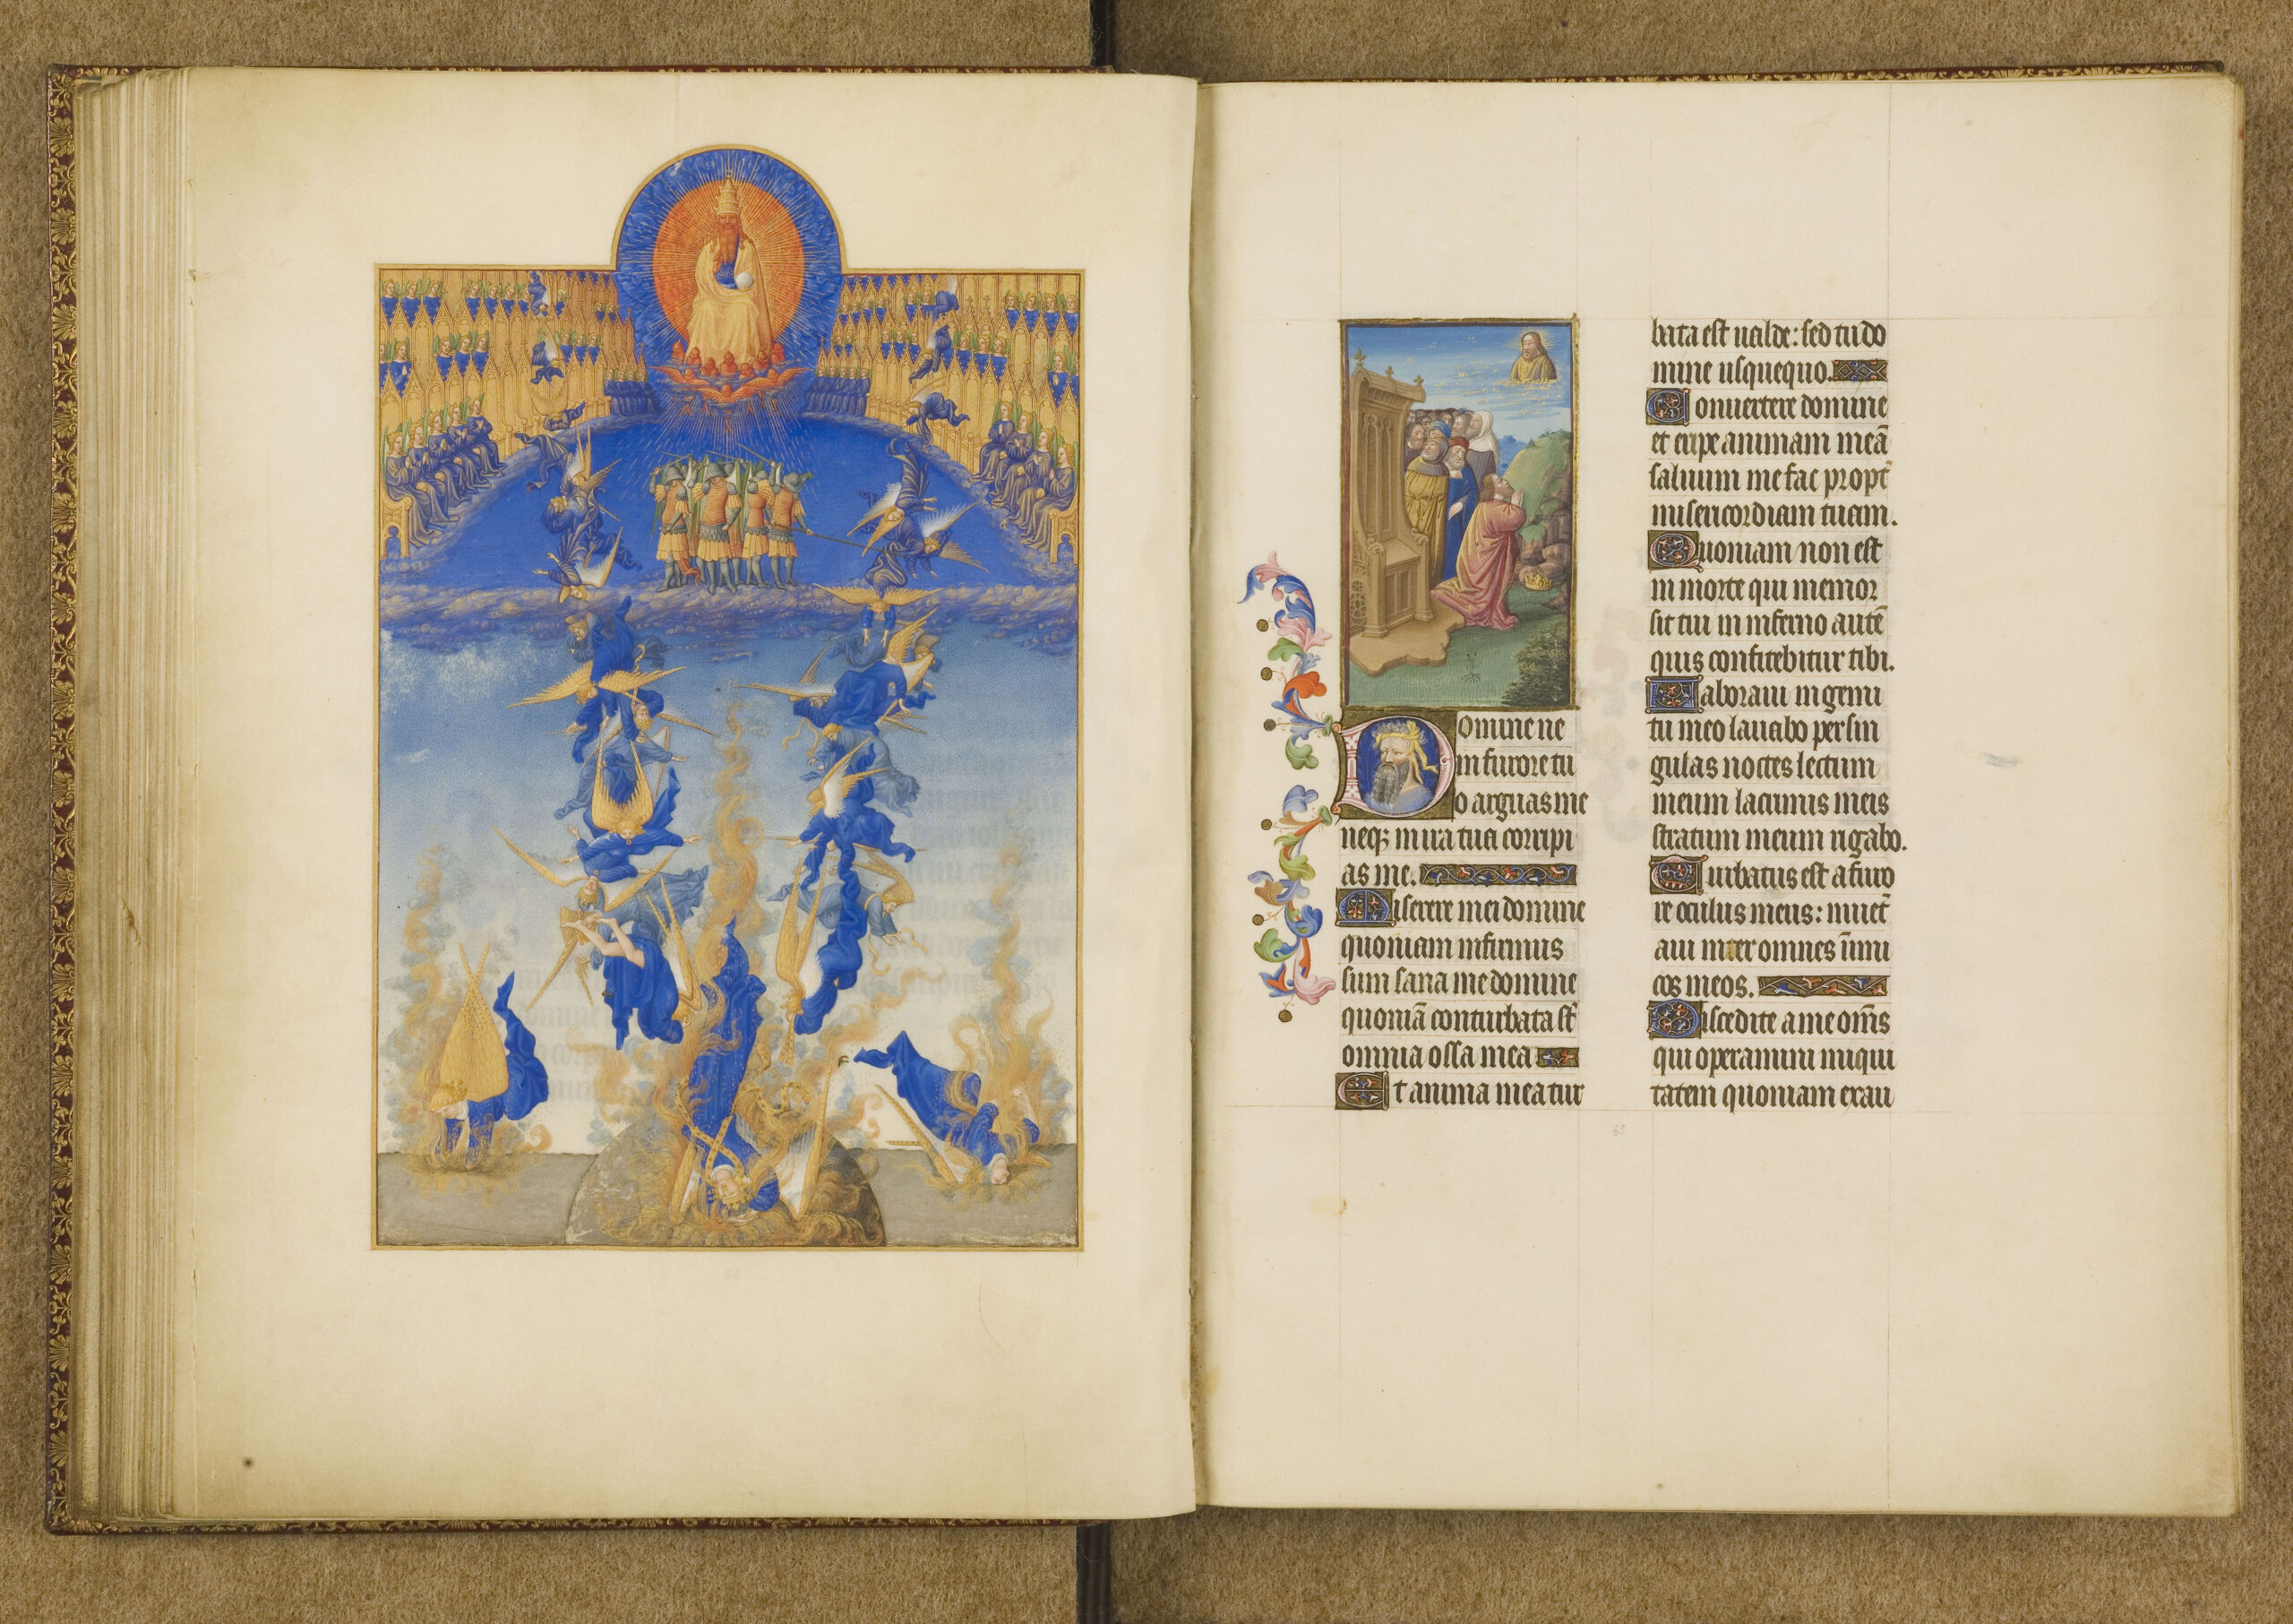 Domine ne
in furore tu
o arguas me
neqz in ira tua corripi
as me.
Miserere mei domine
quoniam infirmus
sum sana me domine
quoniā conturbata st̄
omnia ossa mea
Et anima mea tur
bata est ualde: sed tu do
mine usquequo.
Conuertere domine
et eripe animam meā
saluum me fac propt̄
misericordiam tuam.
Quoniam non est
in morte qui memor
sit tui in inferno autē
quis confitebitur tibi.
Laboraui in gemi
tu meo lauabo per sin
gulas noctes lectum
meum lacrimis meis
stratum meum rigabo.
Turbatus est a furo
re oculus meus: inuet̄
aui inter omnes inimi
cos meos.
Discedite a me om̄s
qui operamini iniqui
tatem quoniam exau
65